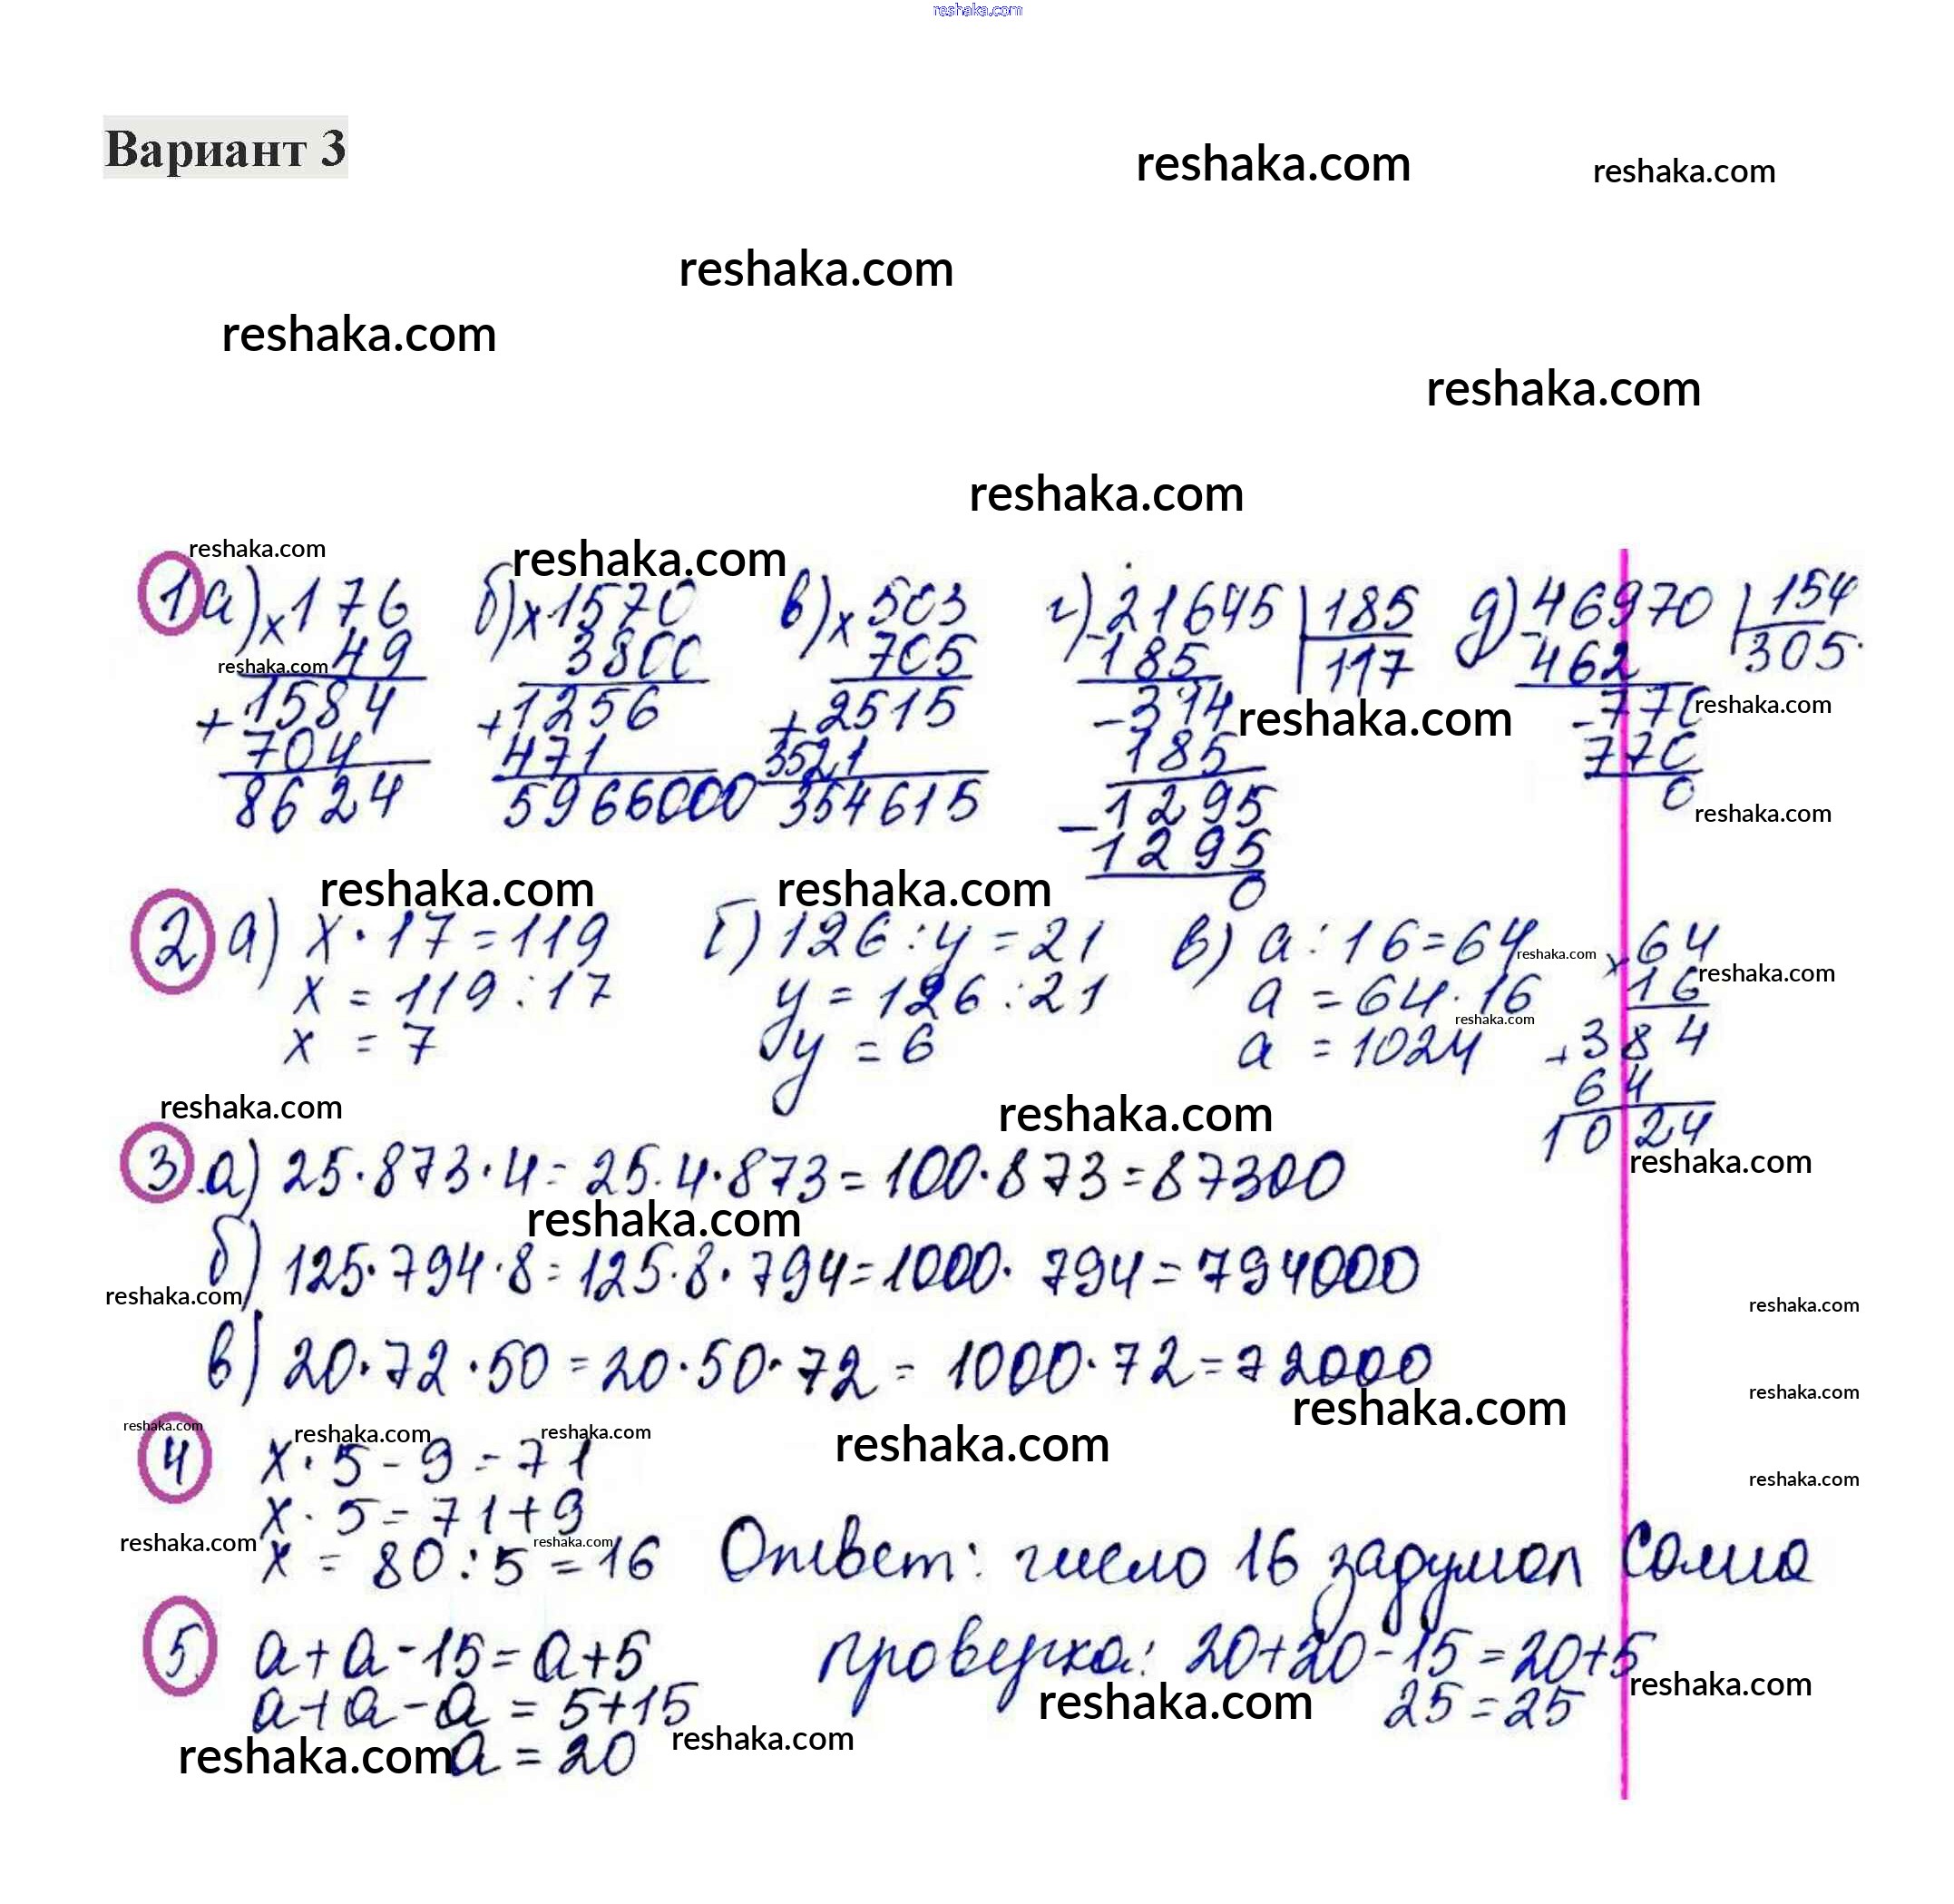 reshaka.com
Вариант 3
reshaka.com reshaka.com
reshaka.com
reshaka.com
reshaka.com
reshaka.com
reshaka.com reshaka.com
1 а) × 176 б) × 1570 в) × 503 г) 21645 | 185 д) 46970 | 154
reshaka.com 49 3800 705 - 185 117 - 462 305
+ 1584 + 1256 + 2515 - 314 reshaka.com - 770 reshaka.com
704 471 3521 185 770
8624 5966000 354615 - 1295 0 reshaka.com
1295
reshaka.com reshaka.com 0
2 а) x · 17 = 119 б) 126 : y = 21 в) a : 16 = 64 reshaka.com × 64
x = 119 : 17 y = 126 : 21 a = 64 · 16 16 reshaka.com
reshaka.com
x = 7 y = 6 a = 1024 + 384
64
reshaka.com reshaka.com 1024
3 а) 25 · 873 · 4 = 25 · 4 · 873 = 100 · 873 = 87300 reshaka.com
reshaka.com
б) 125 · 794 · 8 = 125 · 8 · 794 = 1000 · 794 = 794000
reshaka.com reshaka.com
в) 20 · 72 · 50 = 20 · 50 · 72 = 1000 · 72 = 72000
reshaka.com reshaka.com
reshaka.com reshaka.com reshaka.com reshaka.com
4 x · 5 - 9 = 71 reshaka.com
x · 5 = 71 + 9
reshaka.com reshaka.com
x = 80 : 5 = 16 Ответ: число 16 задумал Саша
5 a + a - 15 = a + 5 проверка: 20 + 20 - 15 = 20 + 5
a + a - a = 5 + 15 reshaka.com 25 = 25 reshaka.com
reshaka.com a = 20 reshaka.com